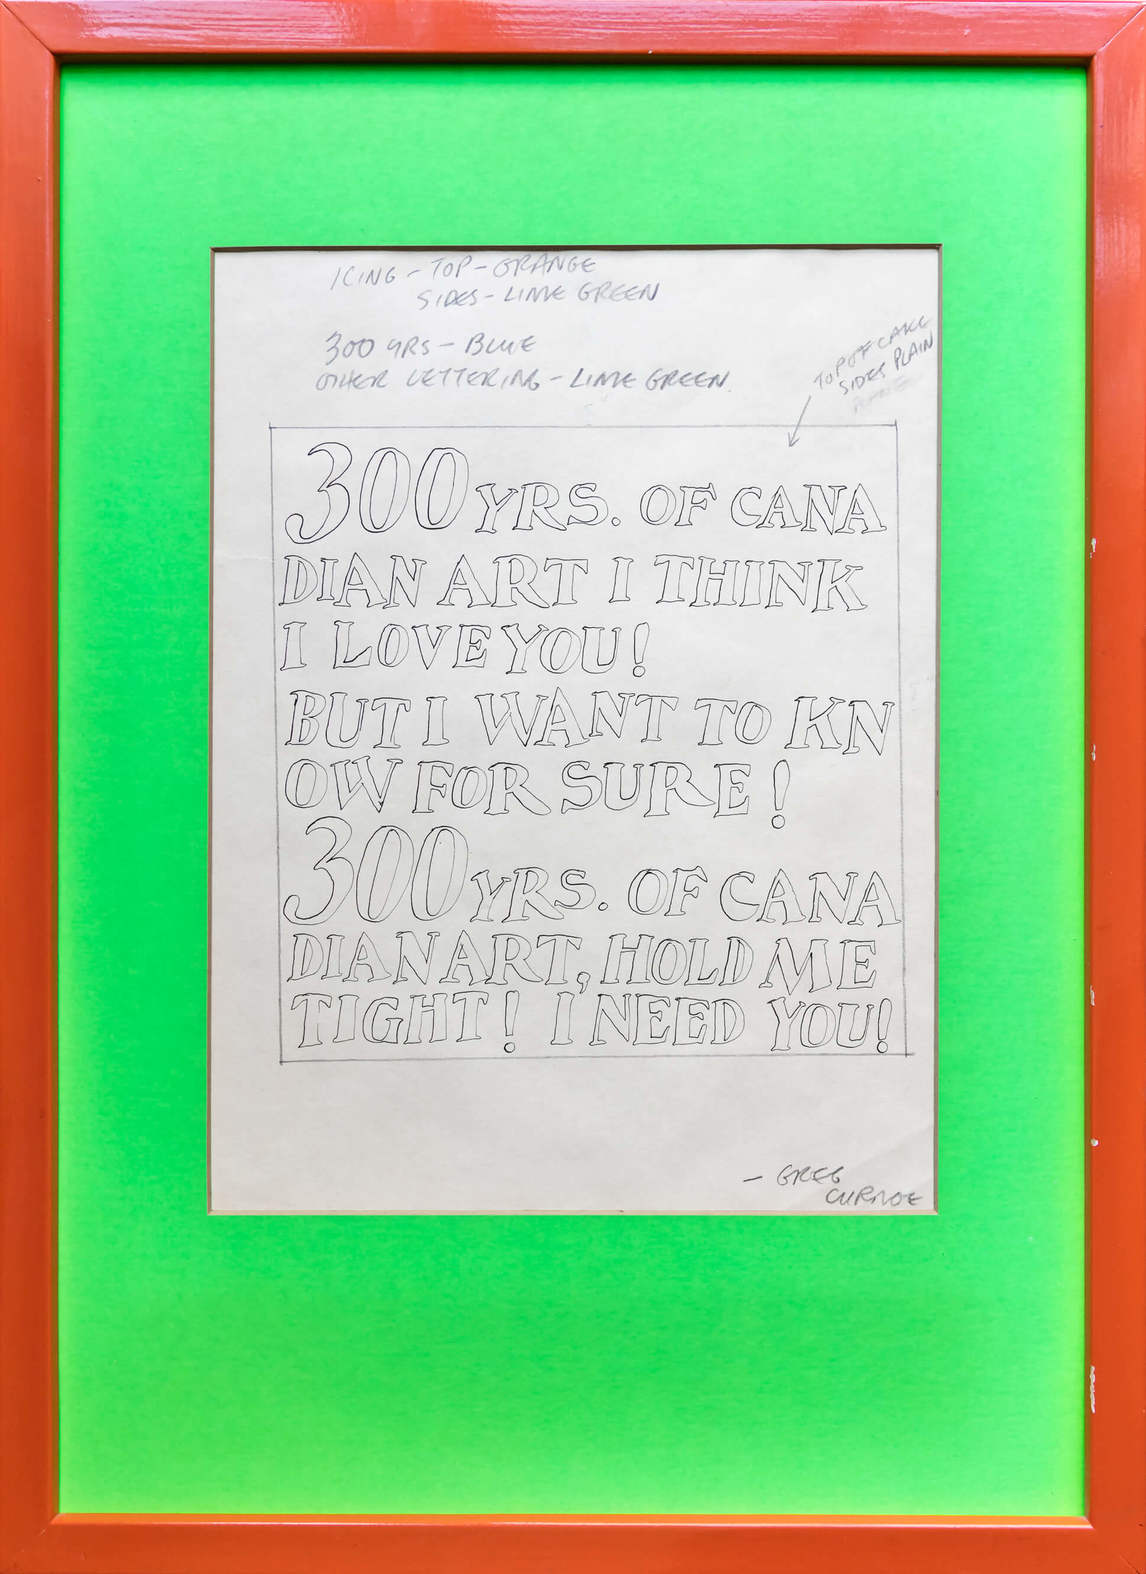 ICING - TOP - ORANGE
SIDES - LIME GREEN
300 YRS - BLUE
OTHER LETTERING - LIME GREEN
TOP OF CAKE
SIDES PLAIN
300 YRS. OF CANA
DIAN ART I THINK
I LOVE YOU!
BUT I WANT TO KN
OW FOR SURE!
300 YRS. OF CANA
DIAN ART, HOLD ME
TIGHT! I NEED YOU!
- GREG
CURNOE